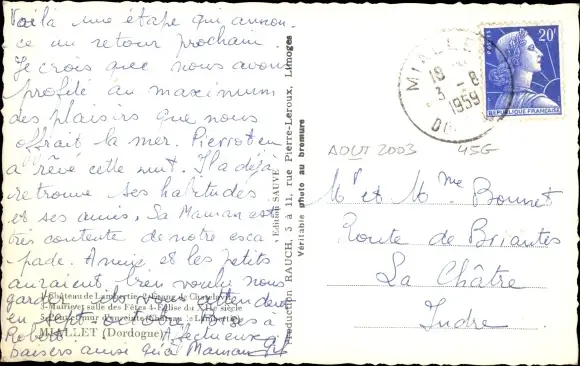 Voilà une étape qui annon-
ce un retour prochain.
Je crois que nous avons
profité au maximum
des plaisirs que nous
offrait la mer. Pierrot en
a rêvé cette nuit. Il a déjà
retrouvé ses habitudes
et ses amis. Sa Maman est
très contente de notre esca
pade. Annie et les petits
auraient bien voulu nous
garder
en sept-octobre. Bises à
Robert Affectueux
baisers ainsi qu'à Maman
1-Château de Lambertie
3-Mairie et salle des Fêtes 4-Eglise du XIIe siècle
MIALLET (Dordogne)
Edition SAUVE
Production RAUCH, 5 à 11, rue Pierre-Leroux, Limoges
Véritable photo au bromure
MIALLET
18
3 - 8
1959
POSTES
20F
REPUBLIQUE FRANÇAISE
AOUT 2003 45G
Mr et Mme Bonnet
Route de Briantes
La Châtre
Indre